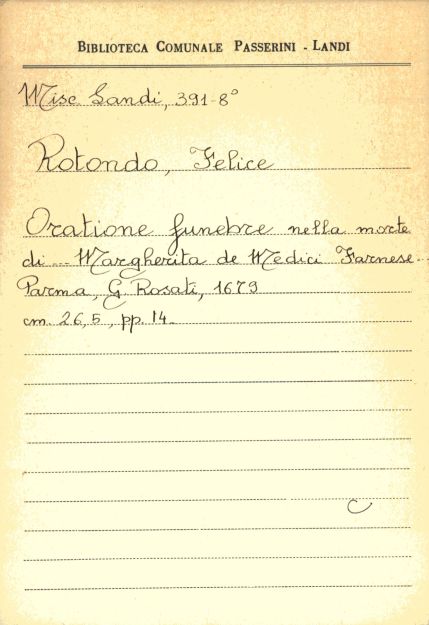 BIBLIOTECA COMUNALE PASSERINI - LANDI
Misc. Landi, 391-8°
Rotondo, Felice
Oratione funebre nella morte
di... Margherita de Medici Farnese.
Parma, G. Rosati, 1679
cm. 26,5, pp. 14.
C